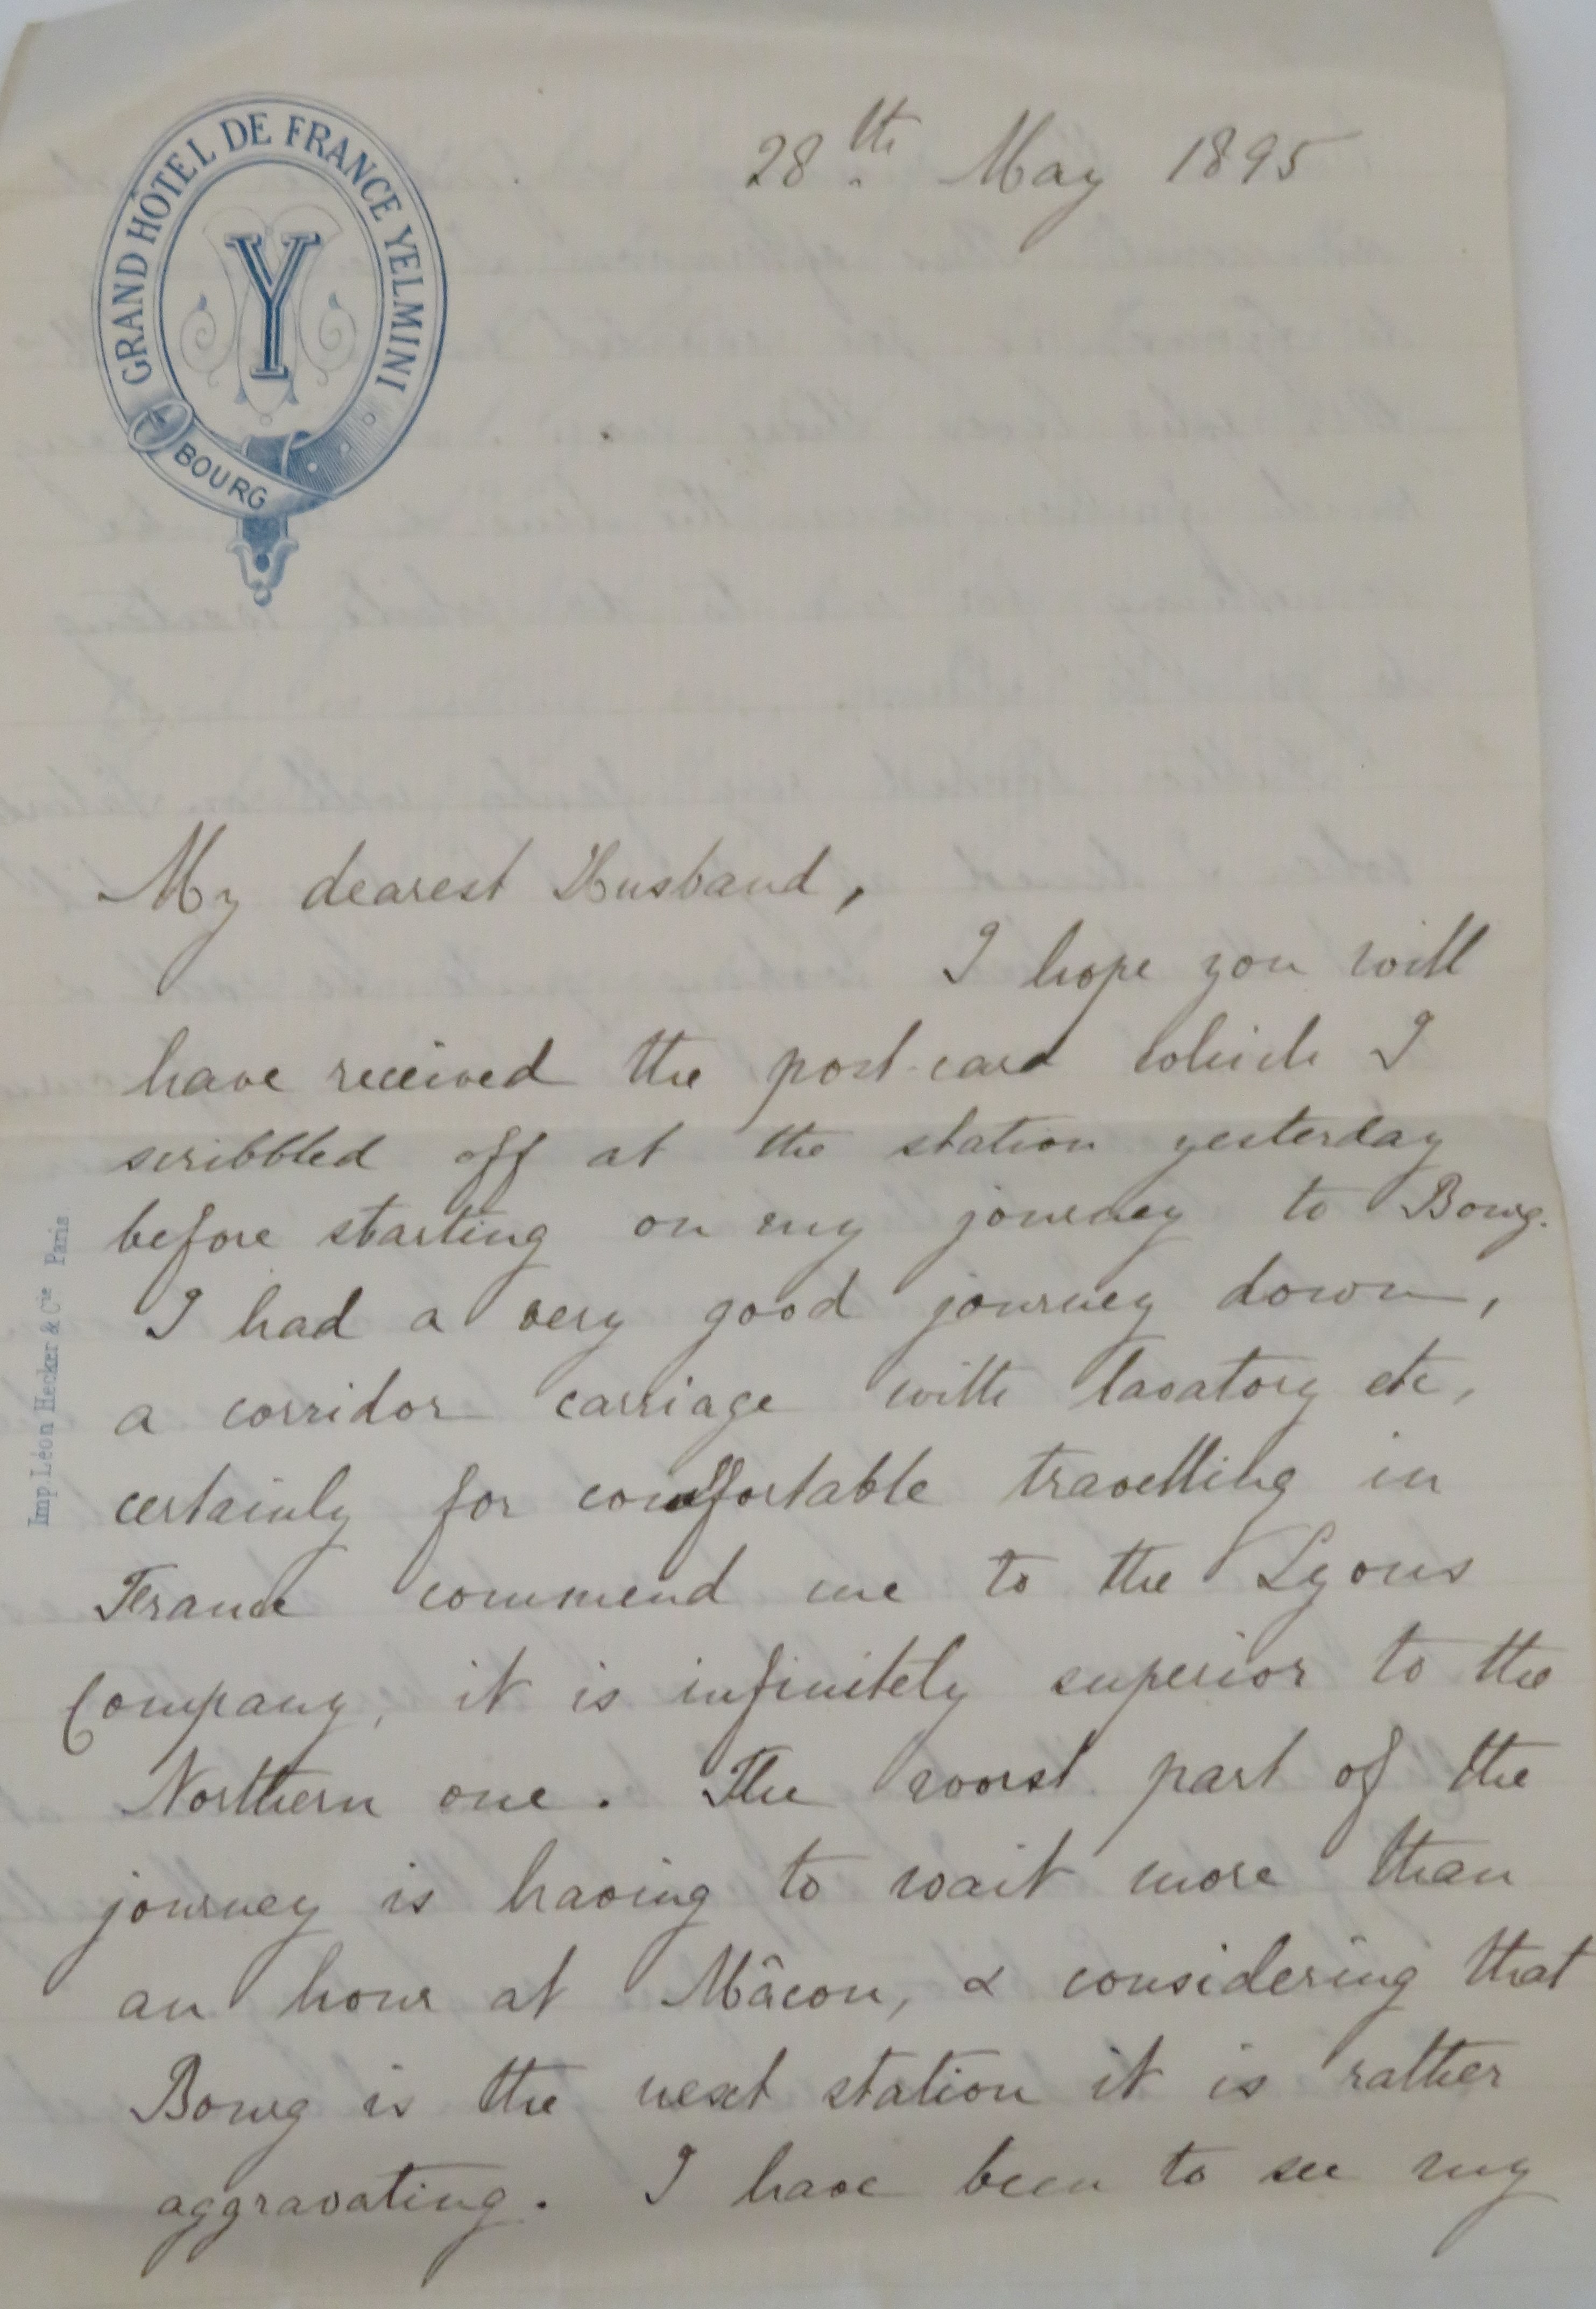 GRAND HÔTEL DE FRANCE YELMINI
Y
BOURG
28th May 1895
My dearest Husband,
I hope you will
have received the post-card which I
scribbled off at the station yesterday
before starting on my journey to Bourg.
I had a very good journey down,
a corridor carriage with lavatory etc,
certainly for comfortable travelling in
France commend me to the Lyons
Company, it is infinitely superior to the
Northern one. The worst part of the
journey is having to wait more than
an hour at Mâcon, & considering that
Bourg is the next station it is rather
aggravating. I have been to see my
Imp. Léon Hecker & Cie Paris